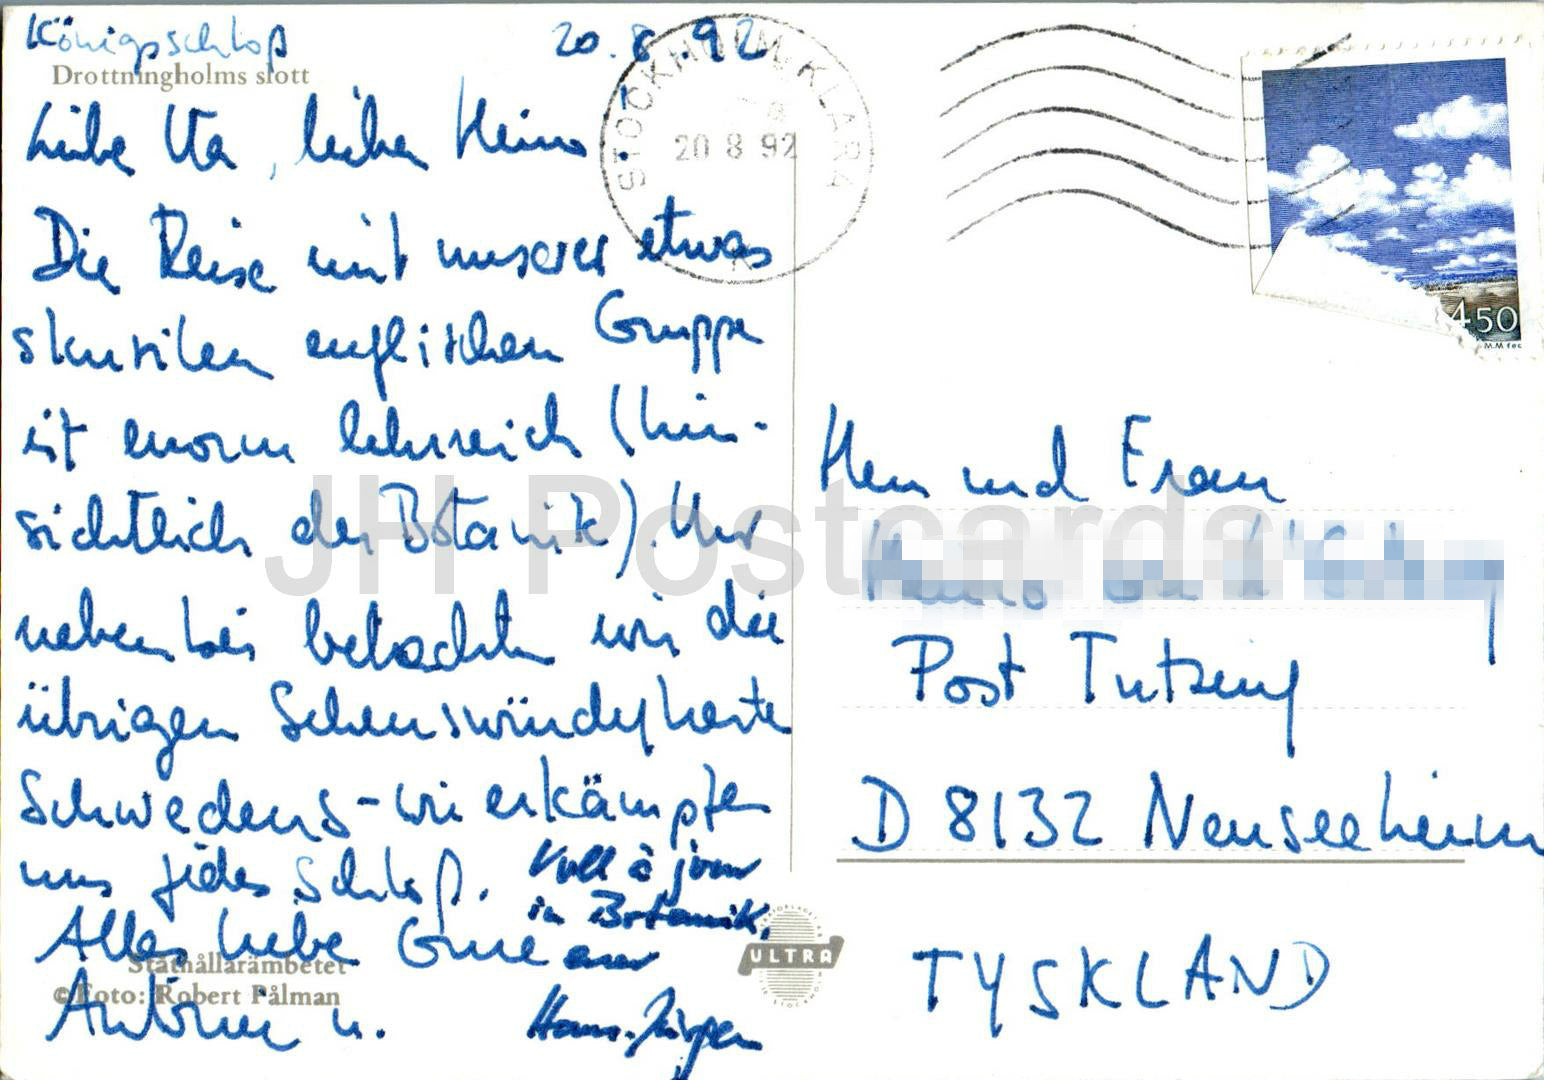 Königsschloß 20.8.92
Drottningholms slott
Liebe Uta, lieber Heino
Die Reise mit unserer etwas
skurrilen englischen Gruppe
ist enorm lehrreich (hin-
sichtlich der Botanik). Nur
nebenbei betrachten wir die
übrigen Sehenswürdigkeiten
Schwedens - wir erkämpfen
uns jedes Schloß.
Alles Liebe
Voll à jour
in Botanik,
Hans-Jürgen
Ståthållarämbetet
© Foto: Robert Pålman
STOCKHOLM KLARA
20 8 92
450
M.M fec
ULTRA
Herrn und Frau
Post Tutzing
D 8132 Neuseeheim
TYSKLAND
JH Postcards